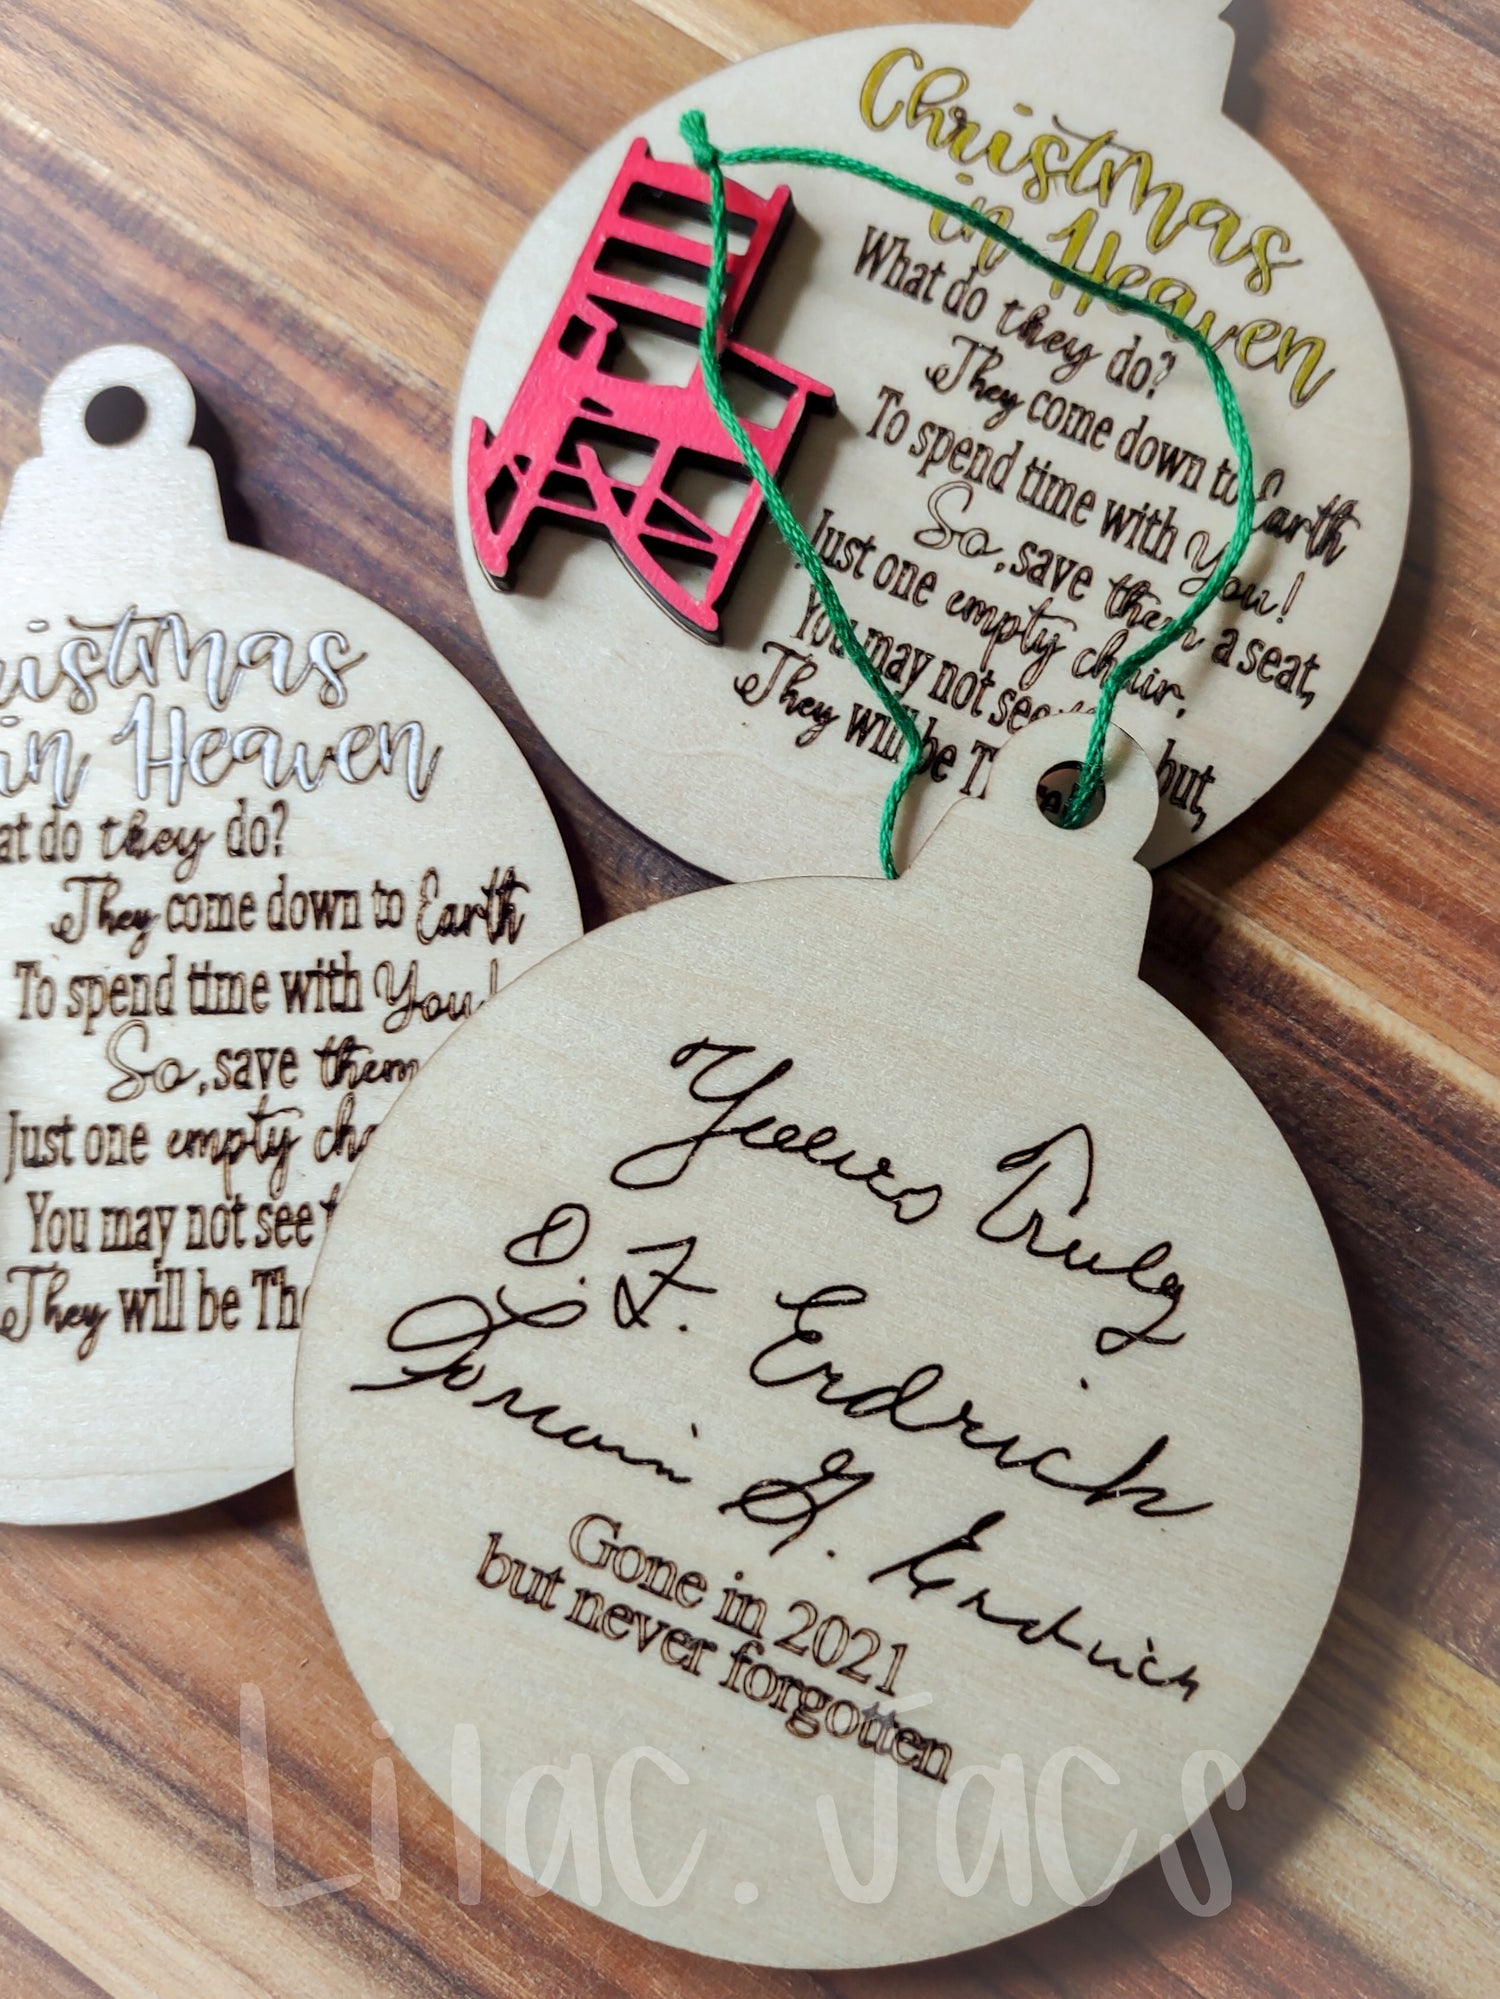 Christmas
in Heaven
What do they do?
They come down to Earth
To spend time with You!
So, save them a seat,
Just one empty chair.
You may not see but,
They will be
in Heaven
do they do?
They come down to Earth
To spend time with You!
So, save them
Just one empty
You may not see
They will be
Yours Truly
O. F. Erdrich
Lorrain G. Erdrich
Gone in 2021
but never forgotten
Lilac. Jacs